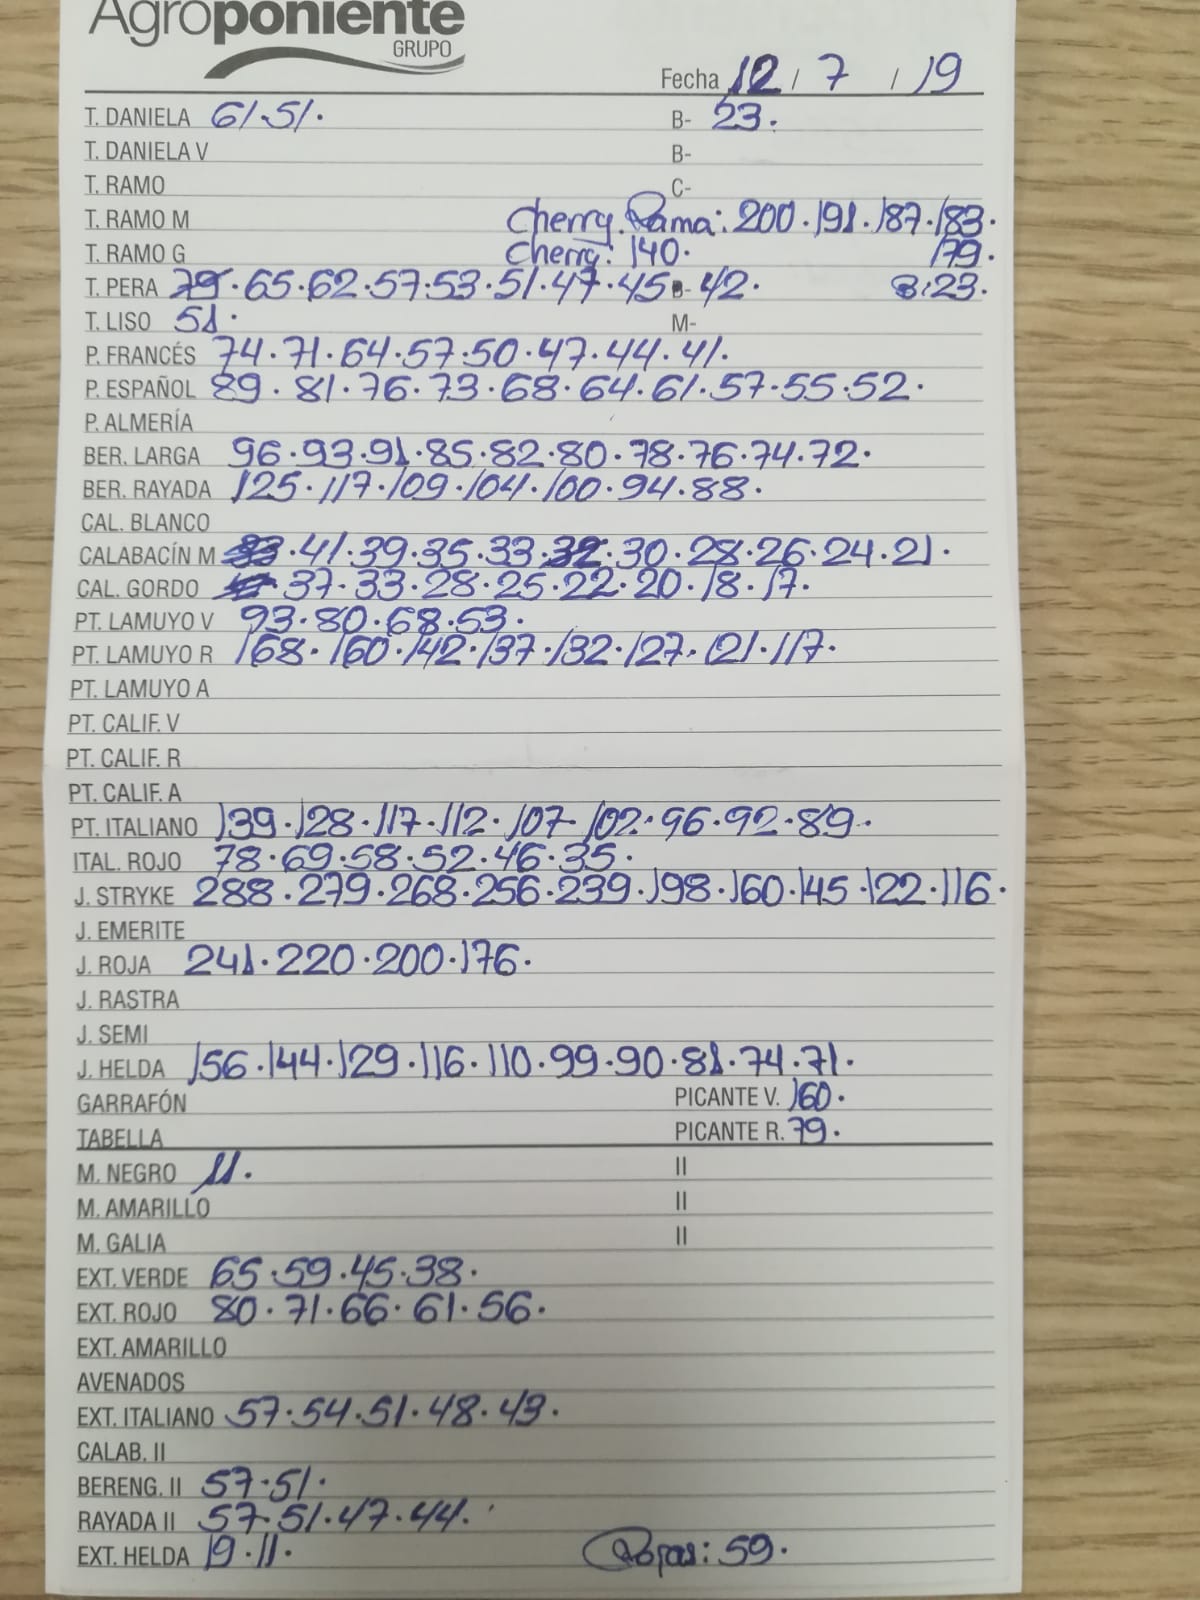 Agroponiente
GRUPO
Fecha 12 / 7 / 19
T. DANIELA 61.51. B- 23.
T. DANIELA V B-
T. RAMO C-
T. RAMO M Cherry Rama: 200.191.187.183.
T. RAMO G Cherry: 140. 179.
T. PERA 79.65.62.57.53.51.47.45. B- 42. B:23.
T. LISO 51. M-
P. FRANCÉS 74.71.64.57.50.47.44.41.
P. ESPAÑOL 89.81.76.73.68.64.61.57.55.52.
P. ALMERÍA
BER. LARGA 96.93.91.85.82.80.78.76.74.72.
BER. RAYADA 125.117.109.104.100.94.88.
CAL. BLANCO
CALABACÍN M .41.39.35.33.32.30.28.26.24.21.
CAL. GORDO .37.33.28.25.22.20.18.17.
PT. LAMUYO V 93.80.68.53.
PT. LAMUYO R 168.160.142.137.132.127.121.117.
PT. LAMUYO A
PT. CALIF. V
PT. CALIF. R
PT. CALIF. A
PT. ITALIANO 139.128.117.112.107.102.96.92.89.
ITAL. ROJO 78.69.58.52.46.35.
J. STRYKE 288.279.268.256.239.198.160.145.122.116.
J. EMERITE
J. ROJA 241.220.200.176.
J. RASTRA
J. SEMI
J. HELDA 156.144.129.116.110.99.90.81.74.71.
GARRAFÓN PICANTE V. 160.
TABELLA PICANTE R. 79.
M. NEGRO 11. II
M. AMARILLO II
M. GALIA II
EXT. VERDE 65.59.45.38.
EXT. ROJO 80.71.66.61.56.
EXT. AMARILLO
AVENADOS
EXT. ITALIANO 57.54.51.48.43.
CALAB. II
BERENG. II 57.51.
RAYADA II 57.51.47.44.
EXT. HELDA 19.11. Rojas: 59.